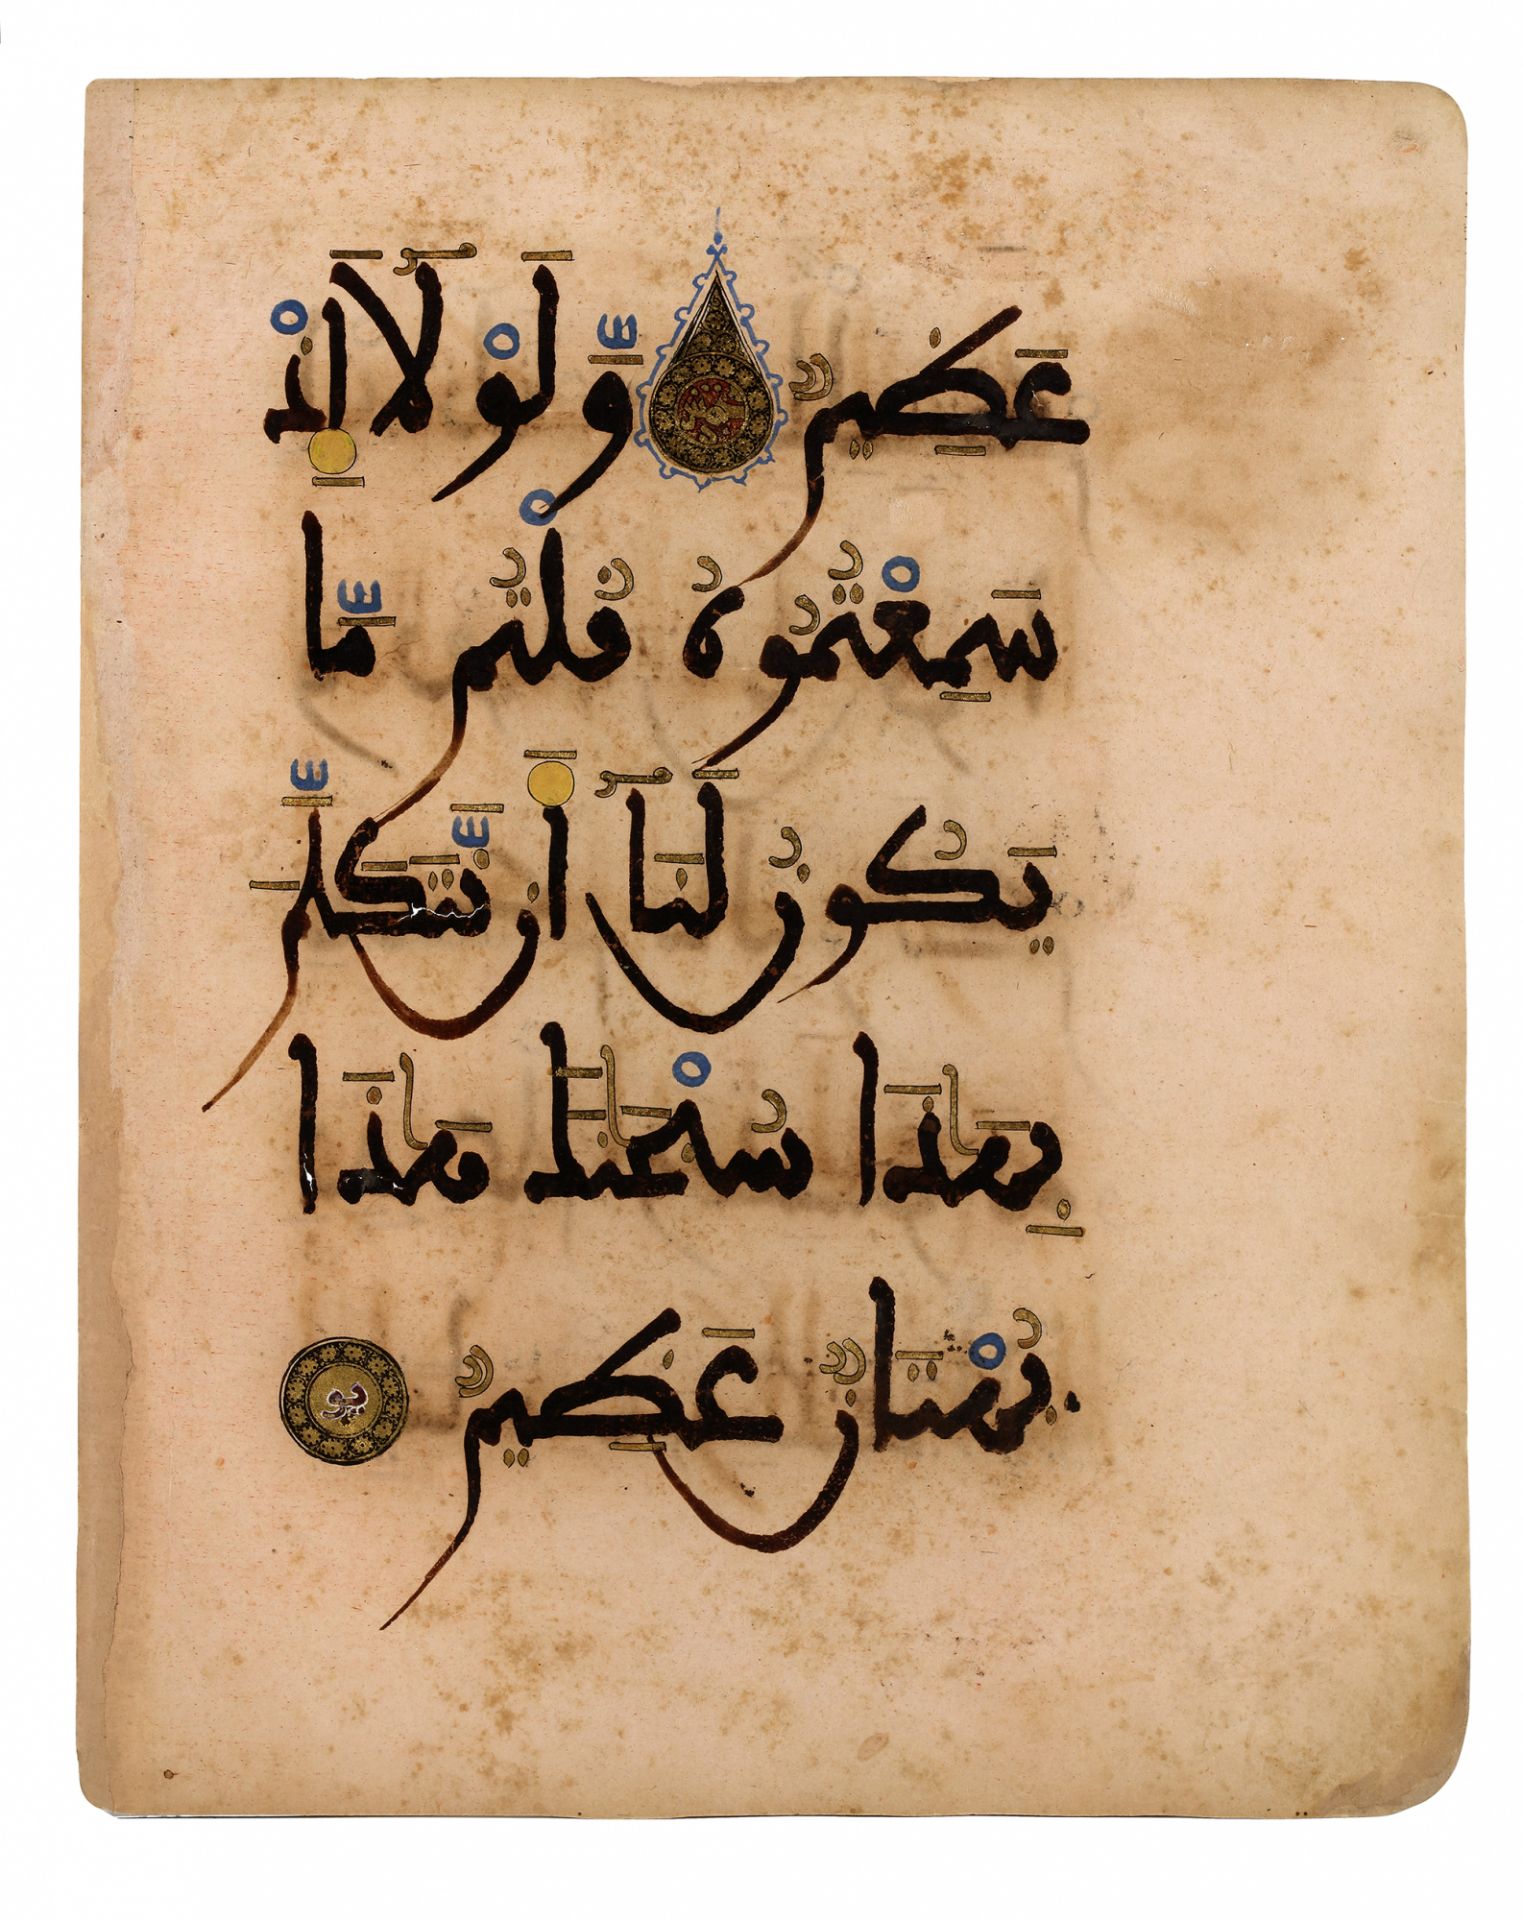 عَظِيمٌ وَّلَوْلَآ إِذْ
سَمِعْتُمُوهُ قُلْتُم مَّا
يَكُونُ لَنَآ أَن نَّتَكَلَّمَ
بِهَٰذَا سُبْحَٰنَكَ هَٰذَا
بُهْتَانٌ عَظِيمٌ